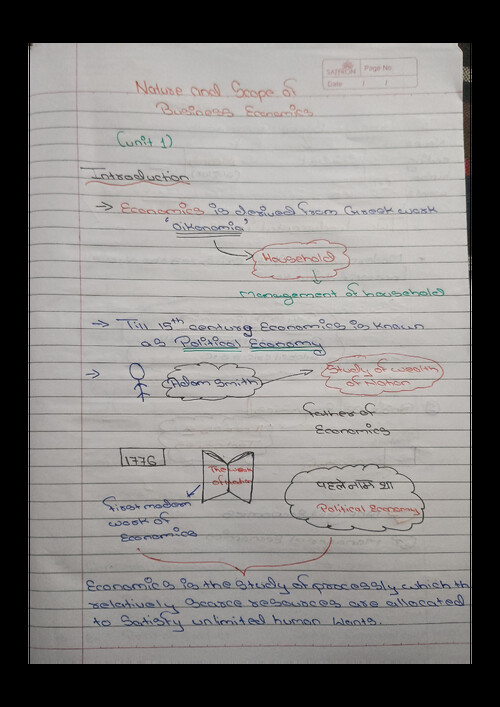 SAPPHIRE
Page No.
Date / /
Nature and Scope of
Business Economics
(unit 1)
Introduction
→ Economics is derived from Greek work
'Oikonomia'
Household
Management of household
→ Till 19th century Economics is known
as Political Economy
→ Adam Smith → Study of wealth
of Nation
father of
Economics
1776
of Nation
पहले नाम था
Political Economy
first modern
work of
Economics
Economics is the study of processly which th
relatively scarce resources are allocated
to satisfy unlimited human wants.